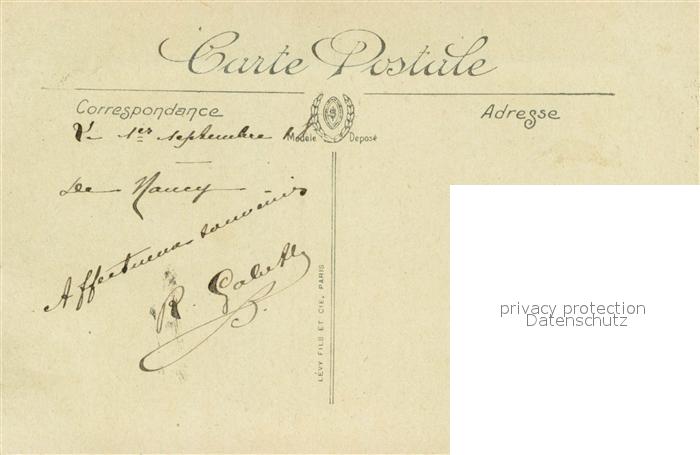 Carte Postale
Correspondance
Adresse
1er septembre
Modèle Déposé
De Nancy
Affectueux souvenir
R.
LÉVY FILS ET CIE, PARIS
privacy protection
Datenschutz